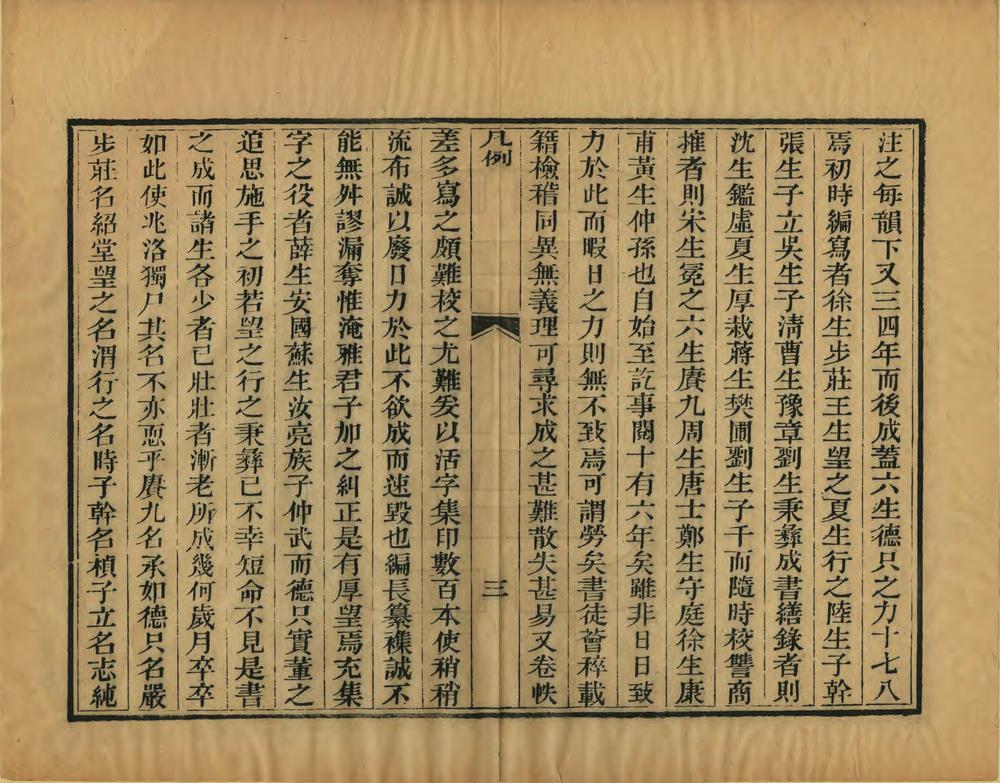 注之每韻下又三四年而後成蓋六生德只之力十七八
焉初時編寫者徐生步莊王生望之夏生行之陸生子幹
張生子立吳生子淸曹生豫章劉生秉彝成書繕錄者則
沈生鑑虛夏生厚栽蔣生樊圃劉生子千而隨時校讐商
搉者則宋生冕之六生賡九周生唐士鄭生守庭徐生康
甫黃生仲孫也自始至訖事閱十有六年矣雖非日日致
力於此而暇日之力則無不致焉可謂勞矣書徒薈稡載
籍檢稽同異無義理可尋求成之甚難散失甚易又卷帙
凡例
三
差多寫之頗難校之尤難爰以活字集印數百本使稍稍
流布誠以廢日力於此不欲成而速毀也編長纂襍誠不
能無舛謬漏奪惟淹雅君子加之糾正是有厚望焉充集
字之役者薛生安國蘇生汝亮族子仲武而德只實董之
追思施手之初若望之行之秉彝已不幸短命不見是書
之成而諸生各少者已壯壯者漸老所成幾何歲月卒卒
如此使兆洛獨尸其名不亦恧乎賡九名承如德只名嚴
步莊名紹堂望之名渭行之名時子幹名楨子立名志純